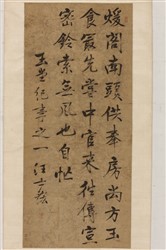 煖閣南頭供奉房尚方玉
食最先嘗中官來往傳宣
密鈴索無風也自忙
玉堂紀事之一 汪士鋐